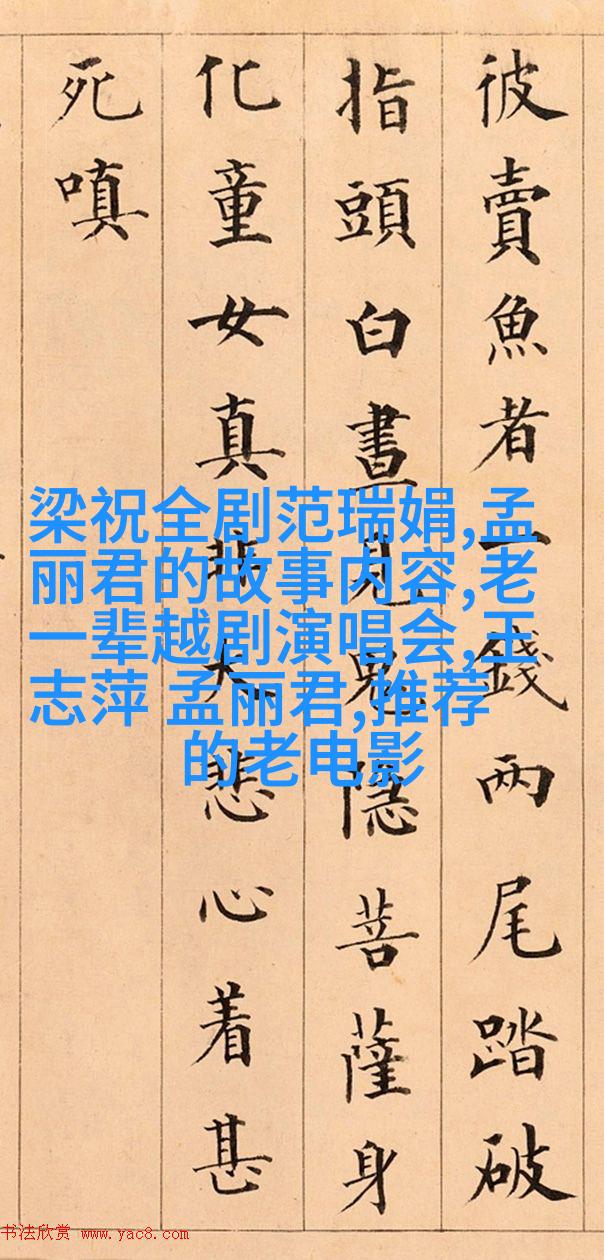 彼賣魚者一錢两尾踏破
指頭白晝見鬼隱菩薩身
化童女真非大悲心着甚
死嗔
梁祝全剧范瑞娟,孟
丽君的故事内容,老
一辈越剧演唱会,王
志萍 孟丽君,推荐
的老电影
书法欣赏 www.yac8.com